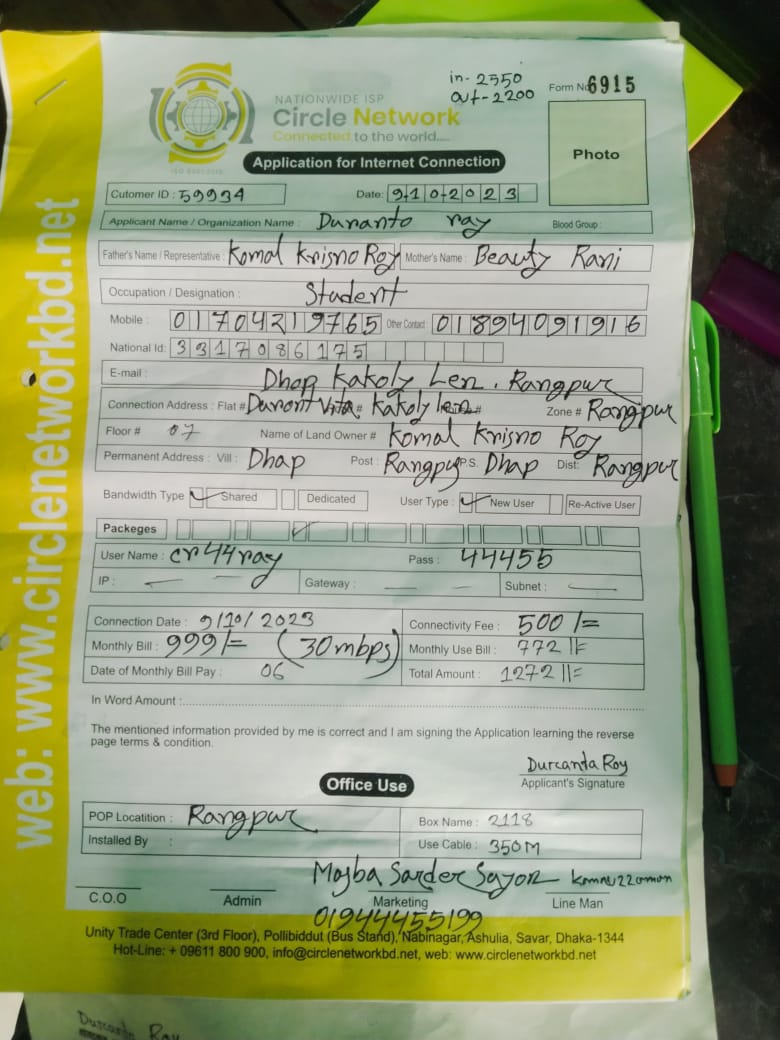 in- 2550
out-2200
Form No 6915
NATIONWIDE ISP
Circle Network
Connected to the world....
ISO 9001:2015
Application for Internet Connection
Photo
Cutomer ID : 59934
Date: 9 10 2023
Applicant Name / Organization Name : Duranto ray
Blood Group :
Father's Name / Representative : Komal Krisno Roy
Mother's Name : Beauty Rani
Occupation / Designation : Student
Mobile : 01704219765 Other Contact : 01894091916
National Id: 3317086175
E-mail : Dhap Kakoly Len. Rangpur
Connection Address : Flat # Duront Vita # Kakoly len # Zone # Rangpur
Floor # 07 Name of Land Owner # Komal Krisno Roy
Permanent Address : Vill : Dhap Post : Rangpur P.S. Dhap Dist: Rangpur
Bandwidth Type Shared Dedicated User Type : New User Re-Active User
Packeges
User Name : cr44ray Pass : 44455
IP : Gateway : Subnet :
Connection Date : 9/10/2023 Connectivity Fee : 500/=
Monthly Bill : 999/= (30mbps) Monthly Use Bill : 772 ||=
Date of Monthly Bill Pay : 06 Total Amount : 1272 ||=
In Word Amount :
The mentioned information provided by me is correct and I am signing the Application learning the reverse
page terms & condition.
Durcanta Roy
Applicant's Signature
Office Use
POP Locatition : Rangpur Box Name : 2118
Installed By : Use Cable : 350M
Mojba Sarder Sayor
C.O.O Admin Marketing Line Man
01944455199
Unity Trade Center (3rd Floor), Pollibiddut (Bus Stand), Nabinagar, Ashulia, Savar, Dhaka-1344
Hot-Line: + 09611 800 900, info@circlenetworkbd.net, web: www.circlenetworkbd.net
web: www.circlenetworkbd.net
Durcanta Roy